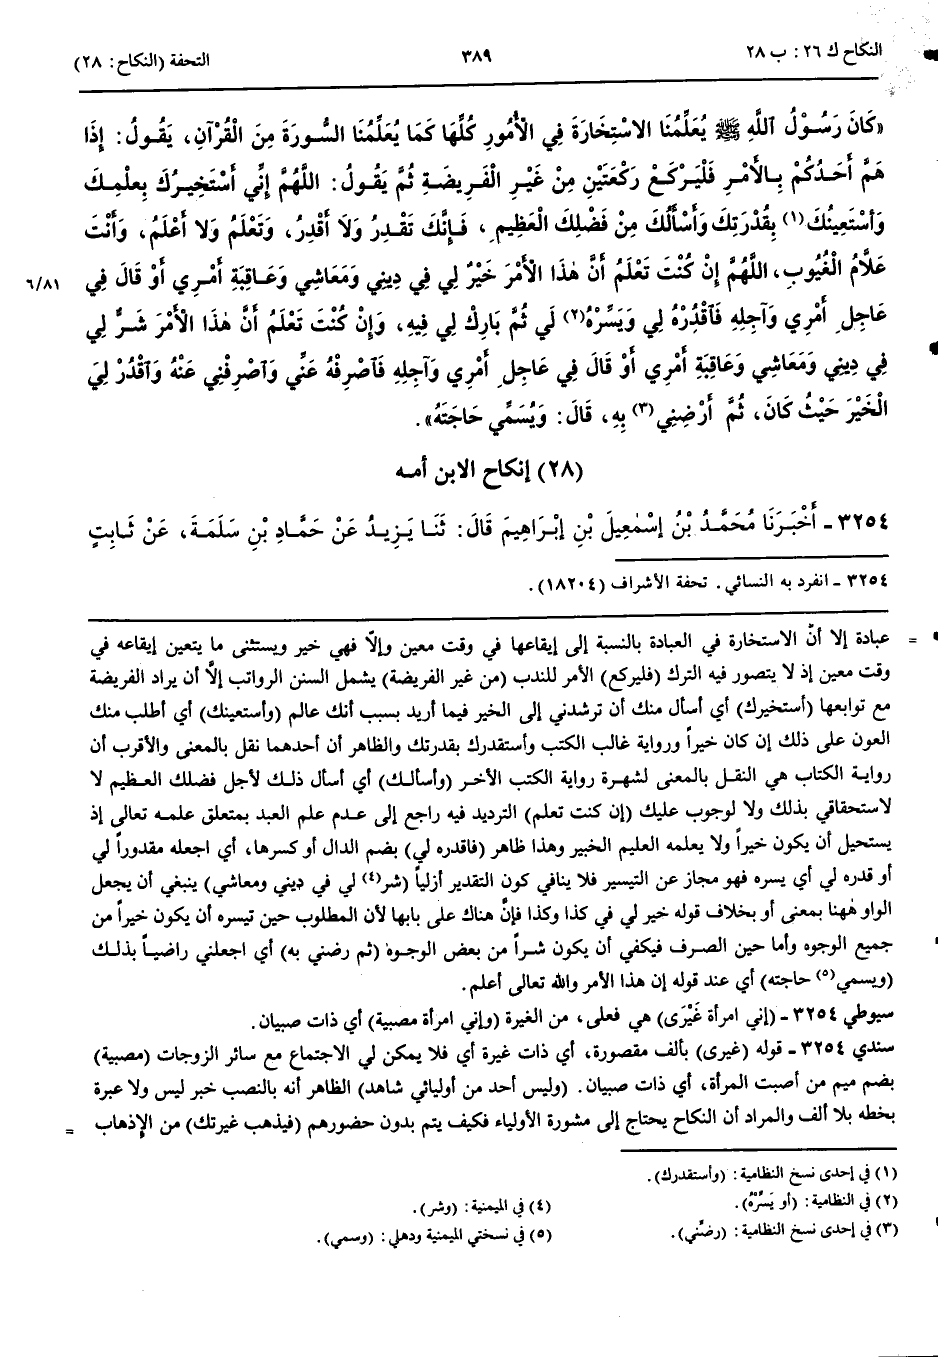 النكاح ك ٢٦: ب ٢٨ ٣٨٩ التحفة (النكاح: ٢٨)
«كَانَ رَسُوْلُ اللَّهِ ﷺ يُعَلِّمُنَا الاسْتِخَارَةَ فِي الأُمُورِ كُلِّهَا كَمَا يُعَلِّمُنَا السُّورَةَ مِنَ الْقُرْآنِ، يَقُولُ: إِذَا
هَمَّ أَحَدُكُمْ بِالأَمْرِ فَلْيَرْكَعْ رَكْعَتَيْنِ مِنْ غَيْرِ الْفَرِيضَةِ ثُمَّ يَقُولُ: اللَّهُمَّ إِنِّي أَسْتَخِيرُكَ بِعِلْمِكَ
وَأَسْتَعِينُكَ(١) بِقُدْرَتِكَ وَأَسْأَلُكَ مِنْ فَضْلِكَ الْعَظِيمِ، فَإِنَّكَ تَقْدِرُ وَلاَ أَقْدِرُ، وَتَعْلَمُ وَلا أَعْلَمُ، وَأَنْتَ
عَلاَّمُ الْغُيُوبِ، اللَّهُمَّ إِنْ كُنْتَ تَعْلَمُ أَنَّ هٰذَا الأَمْرَ خَيْرٌ لِي فِي دِينِي وَمَعَاشِي وَعَاقِبَةِ أَمْرِي أَوْ قَالَ فِي
٦/٨١
عَاجِلِ أَمْرِي وَآجِلِهِ فَاقْدُرْهُ لِي وَيَسِّرْهُ(٢) لَي ثُمَّ بَارِكْ لِي فِيهِ، وَإِنْ كُنْتَ تَعْلَمُ أَنَّ هٰذَا الأَمْرَ شَرٌّ لِي
فِي دِينِي وَمَعَاشِي وَعَاقِبَةِ أَمْرِي أَوْ قَالَ فِي عَاجِلِ أَمْرِي وَآجِلِهِ فَاصْرِفْهُ عَنِّي وَاصْرِفْنِي عَنْهُ وَاقْدُرْ لِيَ
الْخَيْرَ حَيْثُ كَانَ، ثُمَّ أَرْضِنِي(٣) بِهِ، قَالَ: وَيُسَمِّي حَاجَتَهُ».
(٢٨) إنكاح الابن أمه
٣٢٥٤ ـ أَخْبَرَنَا مُحَمَّدُ بْنُ إِسْمٰعِيلَ بْنِ إِبْرَاهِيمَ قَالَ: ثَنَا يَزِيدُ عَنْ حَمَّادِ بْنِ سَلَمَةَ، عَنْ ثَابِتٍ
٣٢٥٤ ـ انفرد به النسائي. تحفة الأشراف (١٨٢٠٤).
= عبادة إلا أنّ الاستخارة في العبادة بالنسبة إلى إيقاعها في وقت معين وإلاّ فهي خير ويستثنى ما يتعين إيقاعه في
وقت معين إذ لا يتصور فيه الترك (فليركع) الأمر للندب (من غير الفريضة) يشمل السنن الرواتب إلاَّ أن يراد الفريضة
مع توابعها (أستخيرك) أي أسأل منك أن ترشدني إلى الخير فيما أريد بسبب أنك عالم (وأستعينك) أي أطلب منك
العون على ذلك إن كان خيراً ورواية غالب الكتب وأستقدرك بقدرتك والظاهر أن أحدهما نقل بالمعنى والأقرب أن
رواية الكتاب هي النقل بالمعنى لشهرة رواية الكتب الأخر (وأسألك) أي أسأل ذلك لأجل فضلك العظيم لا
لاستحقاقي بذلك ولا لوجوب عليك (إن كنت تعلم) الترديد فيه راجع إلى عدم علم العبد بمتعلق علمه تعالى إذ
يستحيل أن يكون خيراً ولا يعلمه العليم الخبير وهذا ظاهر (فاقدره لي) بضم الدال أو كسرها، أي اجعله مقدوراً لي
أو قدره لي أي يسره فهو مجاز عن التيسير فلا ينافي كون التقدير أزلياً (شر(٤) لي في ديني ومعاشي) ينبغي أن يجعل
الواو هٰهنا بمعنى أو بخلاف قوله خير لي في كذا وكذا فإنَّ هناك على بابها لأن المطلوب حين تيسره أن يكون خيراً من
جميع الوجوه وأما حين الصرف فيكفي أن يكون شراً من بعض الوجوه (ثم رضني به) أي اجعلني راضياً بذلك
(ويسمي(٥) حاجته) أي عند قوله إن هذا الأمر والله تعالى أعلم.
سيوطي ٣٢٥٤ ـ (إني امرأة غَيْرَى) هي فعلى، من الغيرة (وإني امرأة مصبية) أي ذات صبيان.
سندي ٣٢٥٤ ـ قوله (غيرى) بألف مقصورة، أي ذات غيرة أي فلا يمكن لي الاجتماع مع سائر الزوجات (مصبية)
بضم ميم من أصبت المرأة، أي ذات صبيان. (وليس أحد من أوليائي شاهد) الظاهر أنه بالنصب خبر ليس ولا عبرة
بخطه بلا ألف والمراد أن النكاح يحتاج إلى مشورة الأولياء فكيف يتم بدون حضورهم (فيذهب غيرتك) من الإذهاب =
(١) في إحدى نسخ النظامية: (وأستقدرك).
(٢) في النظامية: (أو يَسِّرْهُ). (٤) في الميمنية: (وشر).
(٣) في إحدى نسخ النظامية: (رضِّني). (٥) في نسختي الميمنية ودهلي: (وسمي).